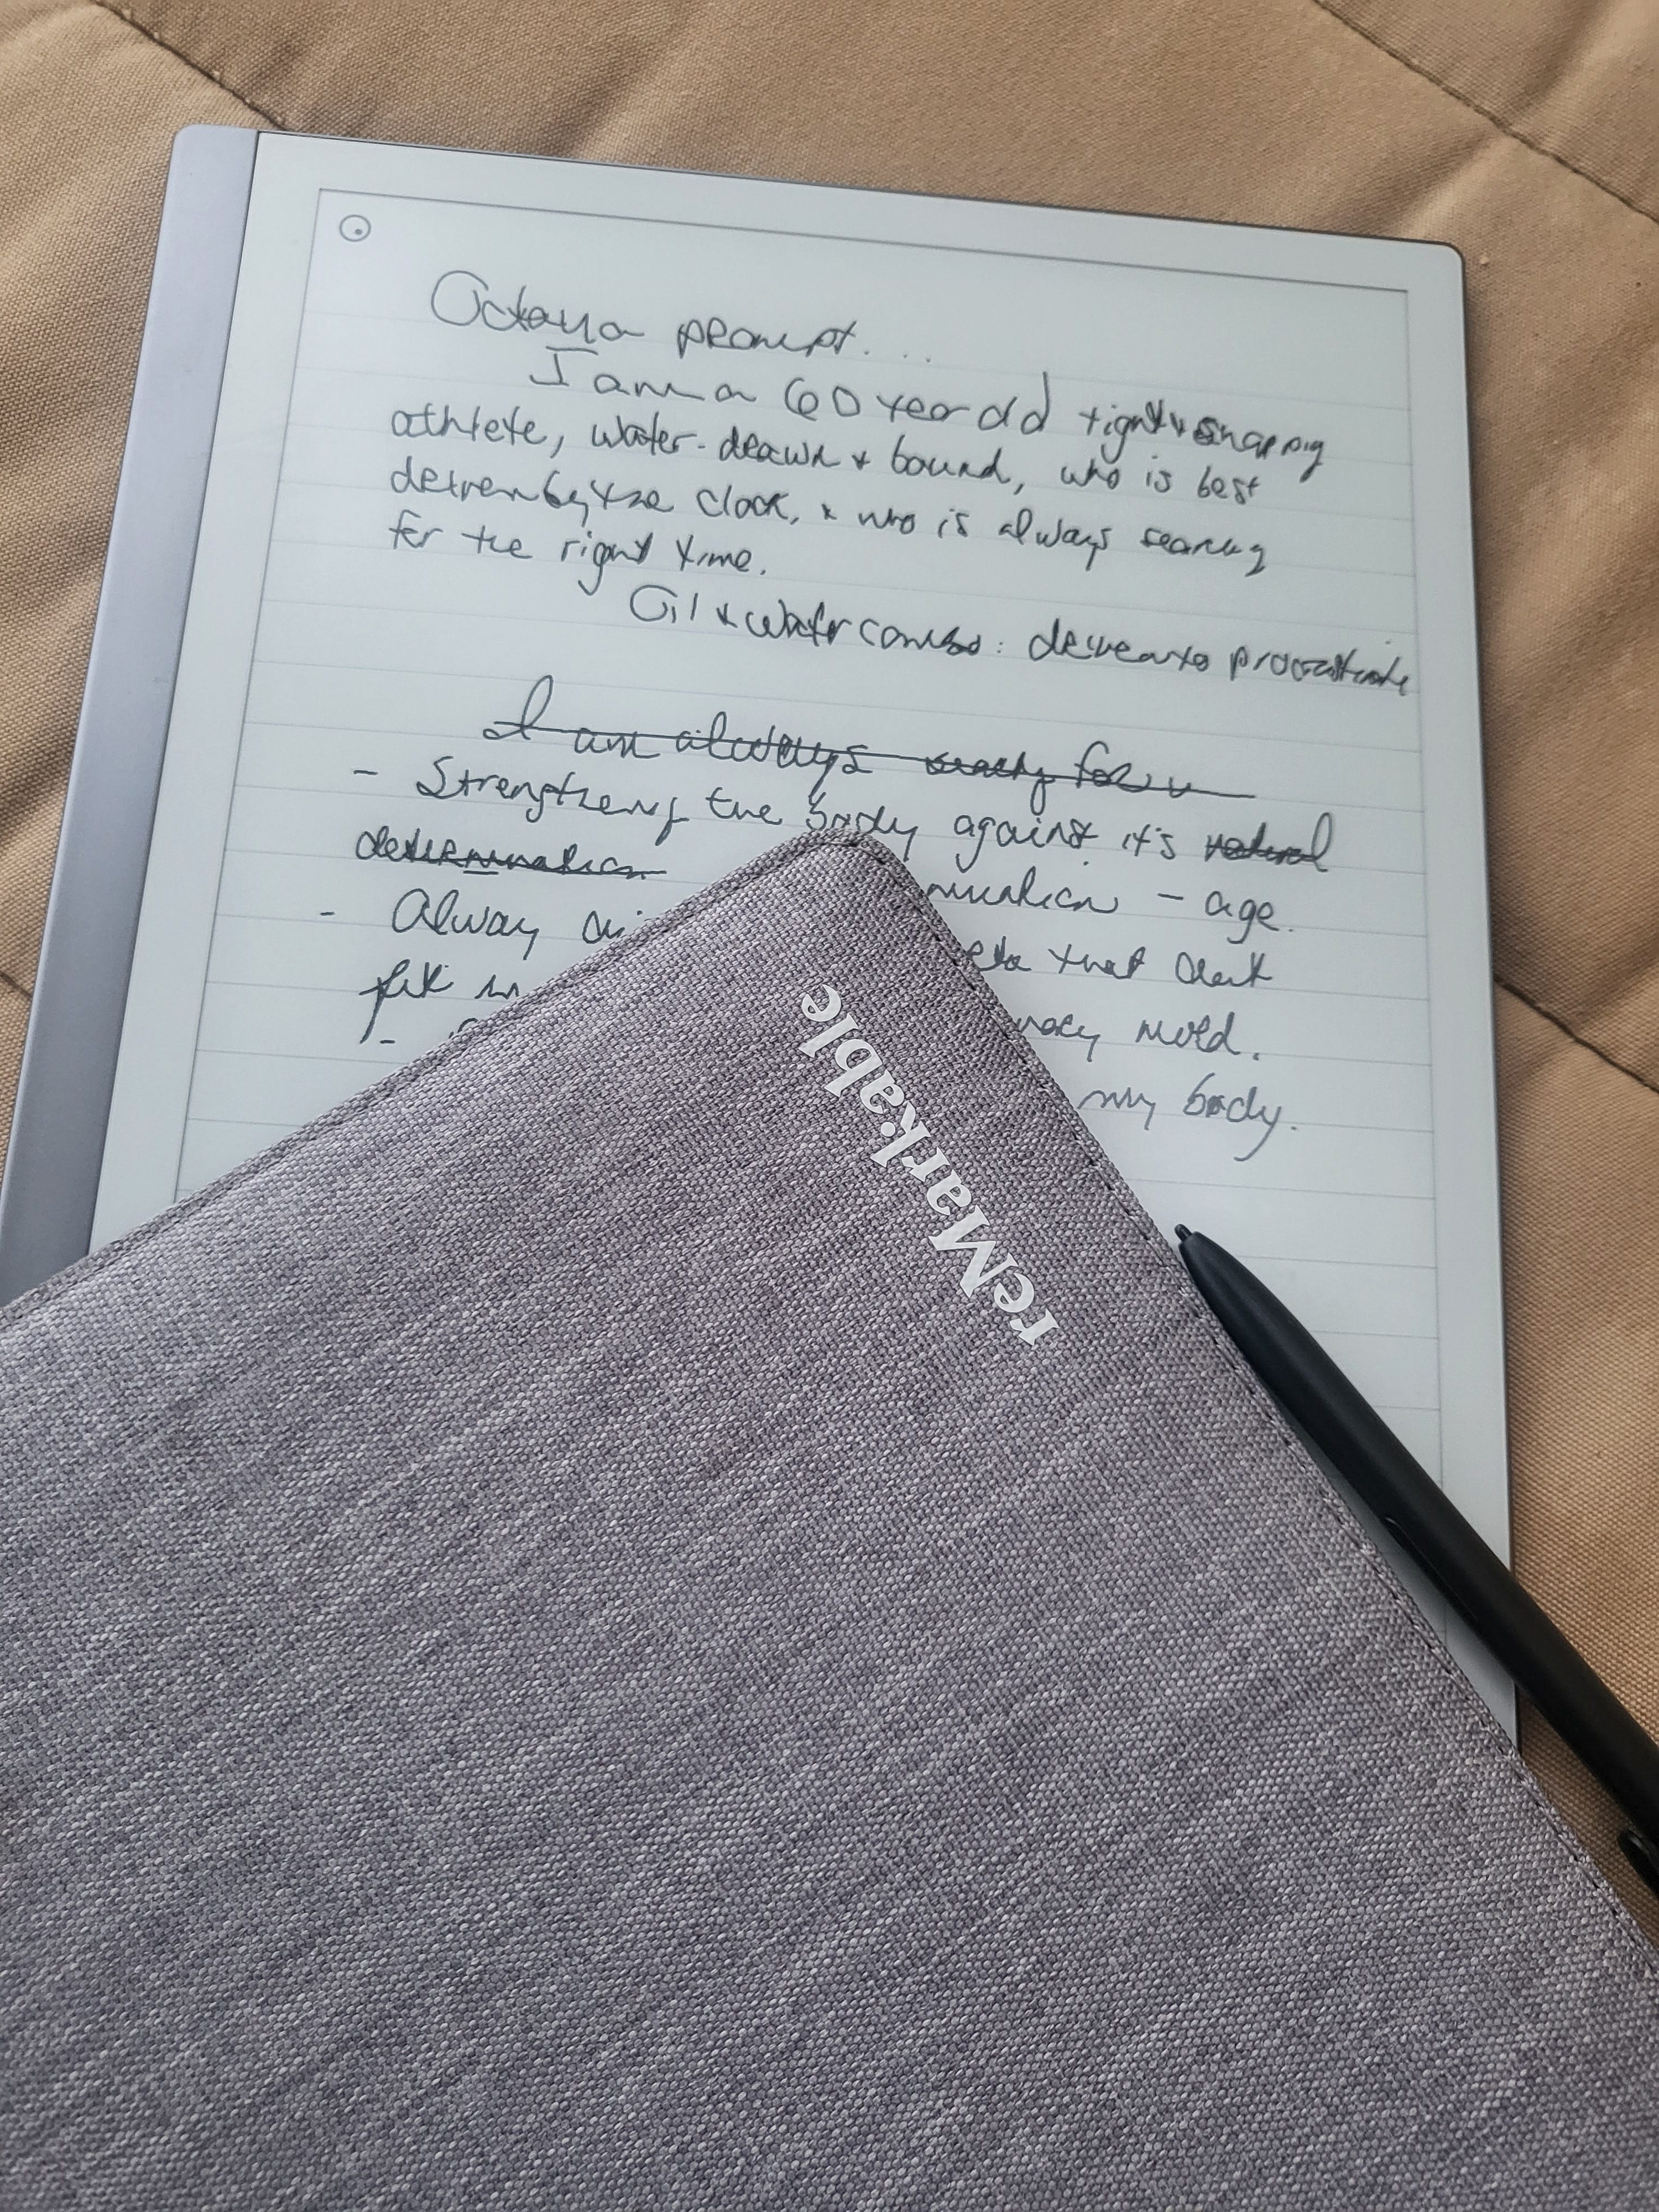 Octavia prompt...
I am a 60 year old right & snapping
athlete, water-drawn & bound, who is best
driven by the clock, & who is always searching
for the right time.
Oil & water combo: driven to procrastinate
I am always ready for
- Strengthening the body against it's natural
determination
mination - age.
- Alway
that don't
fit in
mold.
-
my body.
reMarkable